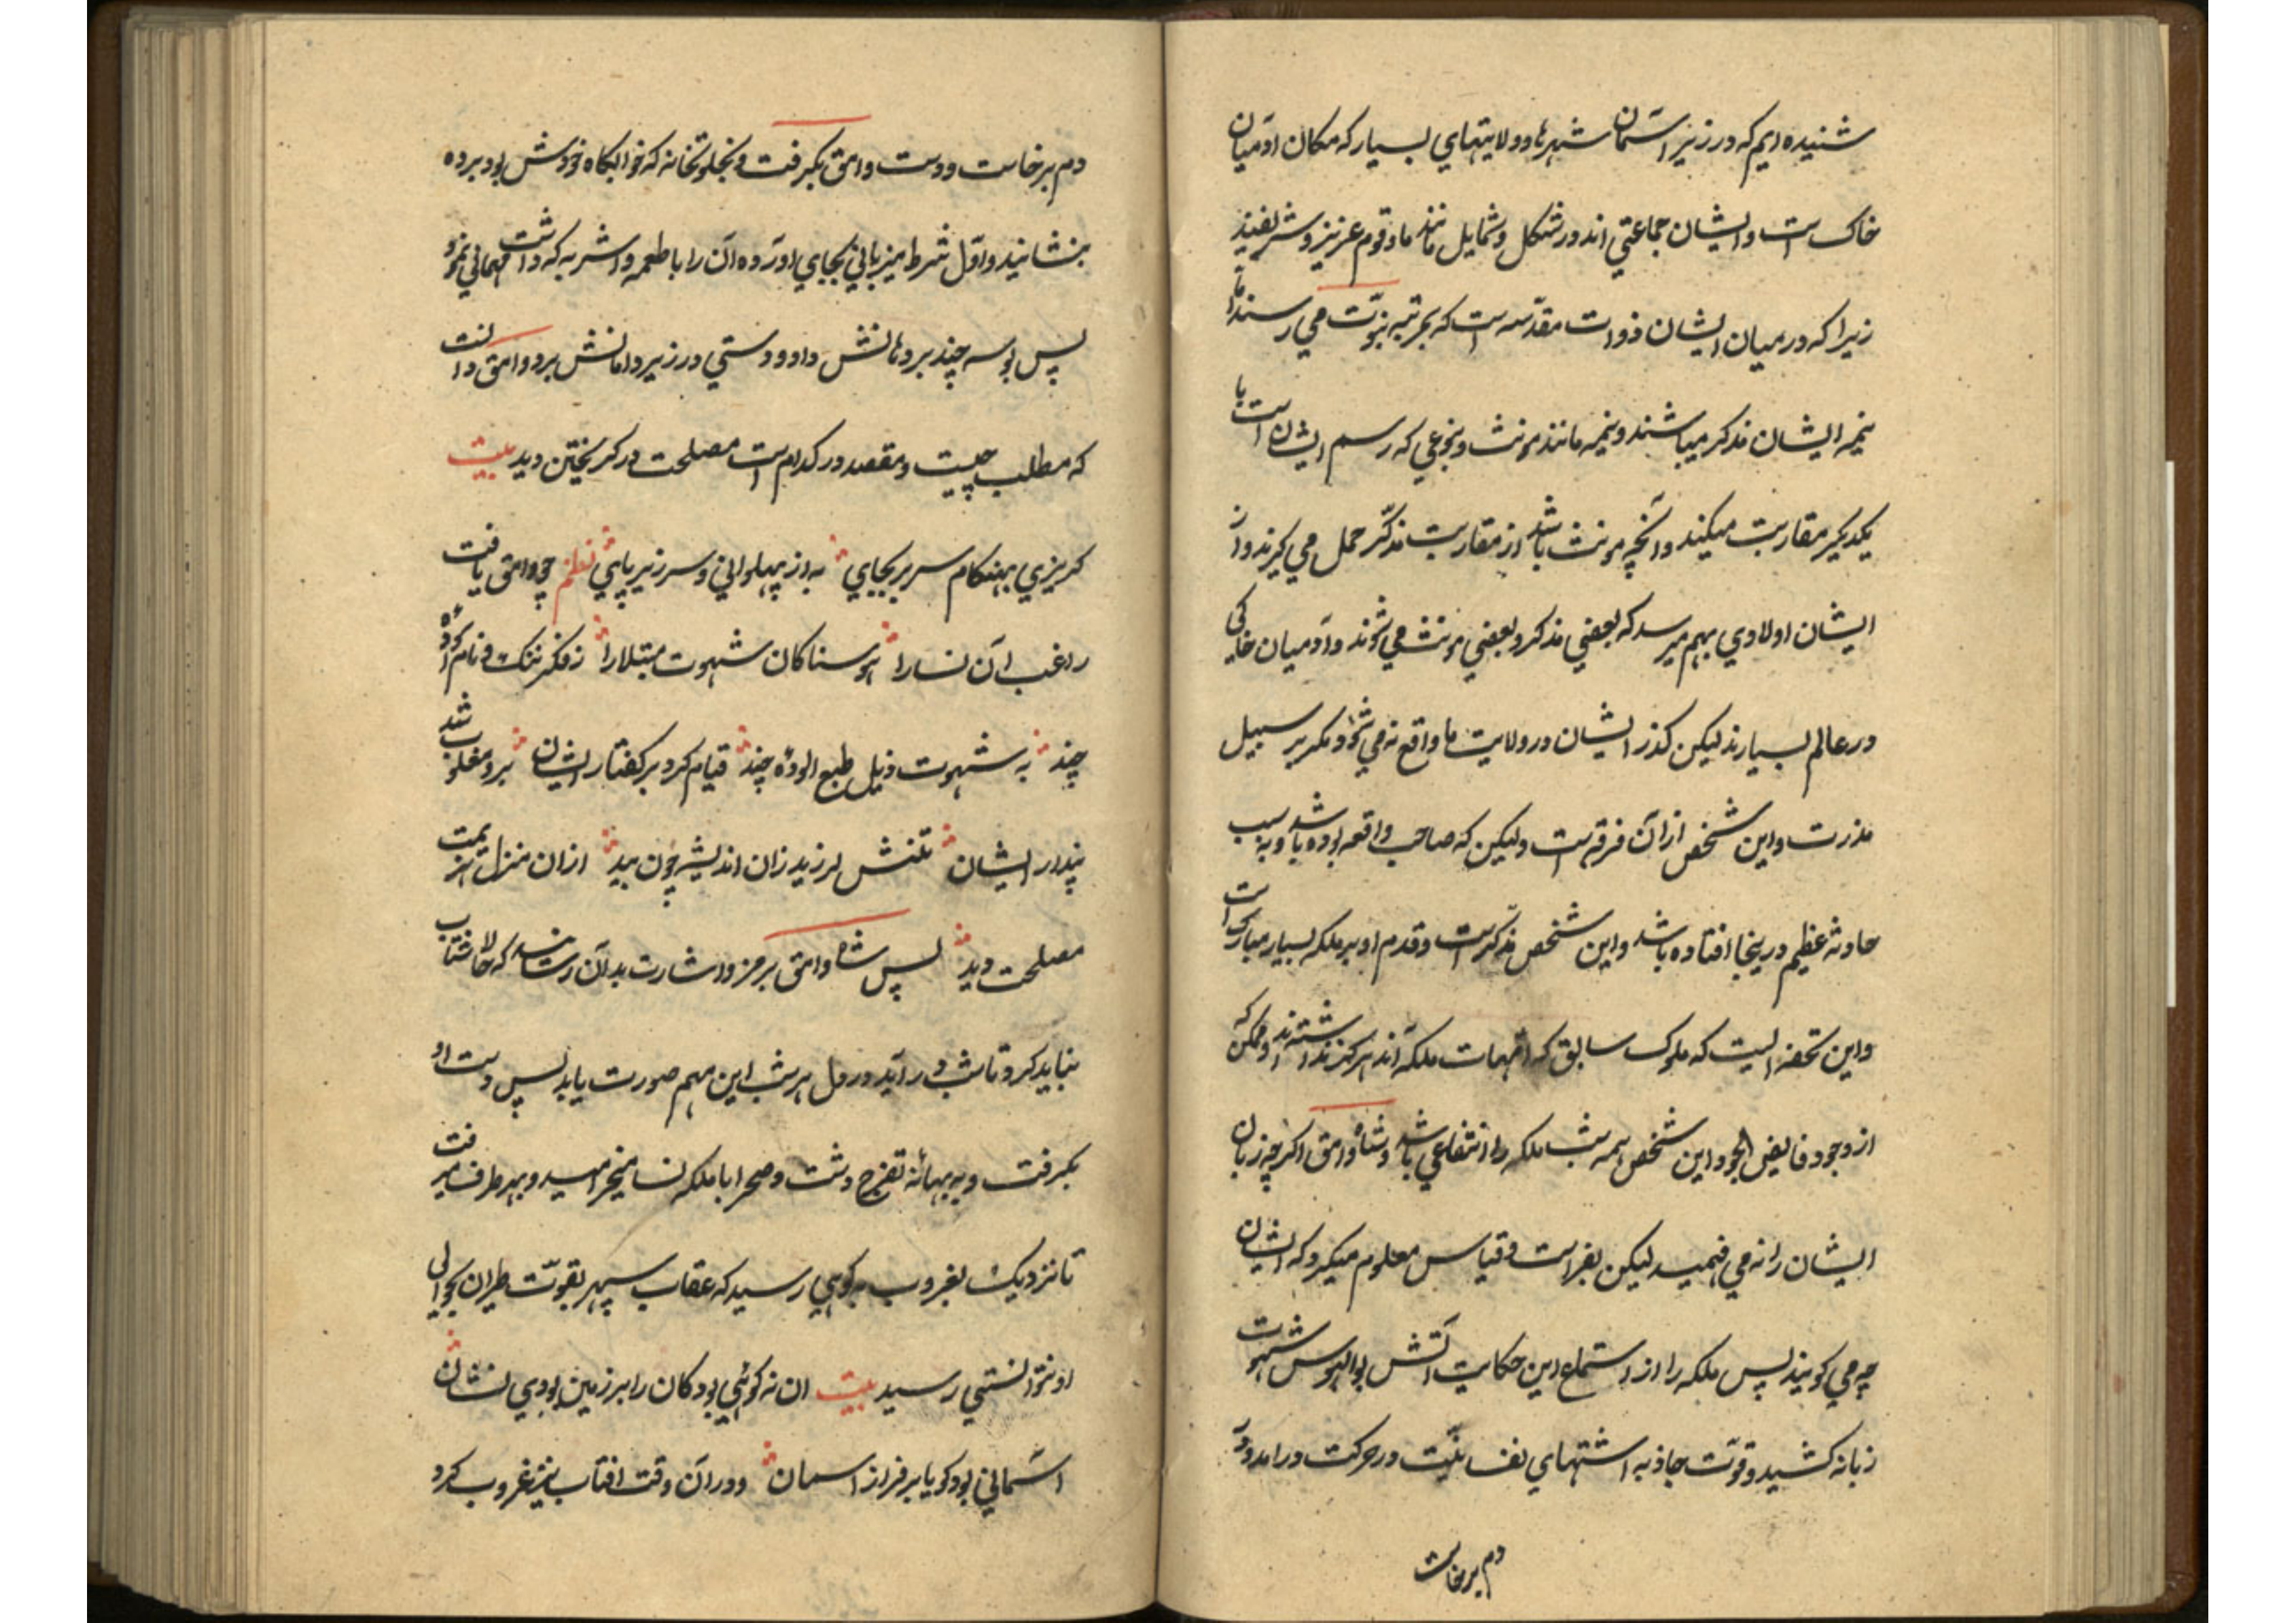 شنیده ایم که در زیر آسمان شهرها و ولایتهای بسیار که مکان آدمیان
خاک است و ایشان جماعتی اند در شکل و شمایل مانند ما و قوم عزیز و شریفند
زیرا که در میان ایشان ذوات مقدّسه است که بمرتبه نبوّت می رسند اما
نیمه ایشان مذکر میباشند و نیمه مانند مونث و بنوعی که رسم ایشان است با
یکدیکر مقاربت میکنند و آنچه مونث باشد از مقاربت مذکّر حمل می کیرند و از
ایشان اولادی بهم میرسد که بعضی مذکر و بعضی مونث می شوند و آدمیان خاکی
در عالم بسیارند لیکن کذر ایشان در ولایت ما واقع نه می شود مکر بر سبیل
ندرت و این شخص از آن فرقه است ولیکن که صاحب واقعه بوده باشد و به سبب
حادثه عظیم درینجا افتاده باشد و این شخص مذکر است و قدم او بر ملکه بسیار مبارک است
و این تحفه ایست که ملوک سابق که امّهات ملکه اند هرکز نداشتند و ممکن که
از وجود فایض الجود این شخص همه شب ملکه را انتفاعی باشد و شاه وامق اکرچه زبان
ایشان را نه می فهمید لیکن بفراست و قیاس معلوم میکرد که ایشان
چه می کویند پس ملکه را از استماع این حکایت آتش بوالهوس شهوت
زبانه کشید و قوّت جاذبه اشتهای نفسانیّت در حرکت درامد و در
دم برخاست
دم برخاست و دست وامق بکرفت و بخلوتخانه که خوابکاه خودش بود برده
بنشانید و اوّل شرط میزبانی بجای اورده آن را باطعمه و اشربه که داشت مهمانی نمود
پس بوسه چند بر دهانش داد و دستی در زیر دامانش برد وامق دانست
که مطلب چیست و مقصد در کدام است مصلحت در کریختن دید بیت
کریزی بهنکام سر بر بجای به از پهلوانی و سر زیر پای نظم چو وامق یافت
راغب آن نسا را هوسناکان شهوت مبتلا را ز فکر ننک و نام آسوده
چند به شهوت ذیل طبع الوده چند قیام کرد بر کفتار ایشان برو مغلوب شد
پندار ایشان تنش لرزید زان اندیشه چون بید ازان منزل هزیمت
مصلحت دید پس شاه وامق برمز و اشارت بدان رسانید که حالا شتاب
نباید کرد تا شب در آید در دل هر شب این مهم صورت یابد پس دست او
بکرفت و به بهانهٔ تفرّج دشت و صحرا با ملکه نسا میخرامید و بهر طرف میرفت
تا نزدیک بغروب به کوهی رسید که عقاب سپهر بقوّت طیران بحوالی
او نتوانستی رسید بیت ان نه کوهی بود کان را بر زمین بودی نشان
آسمانی بود کویا بر فراز اسمان و در آن وقت افتاب نیز غروب کرد